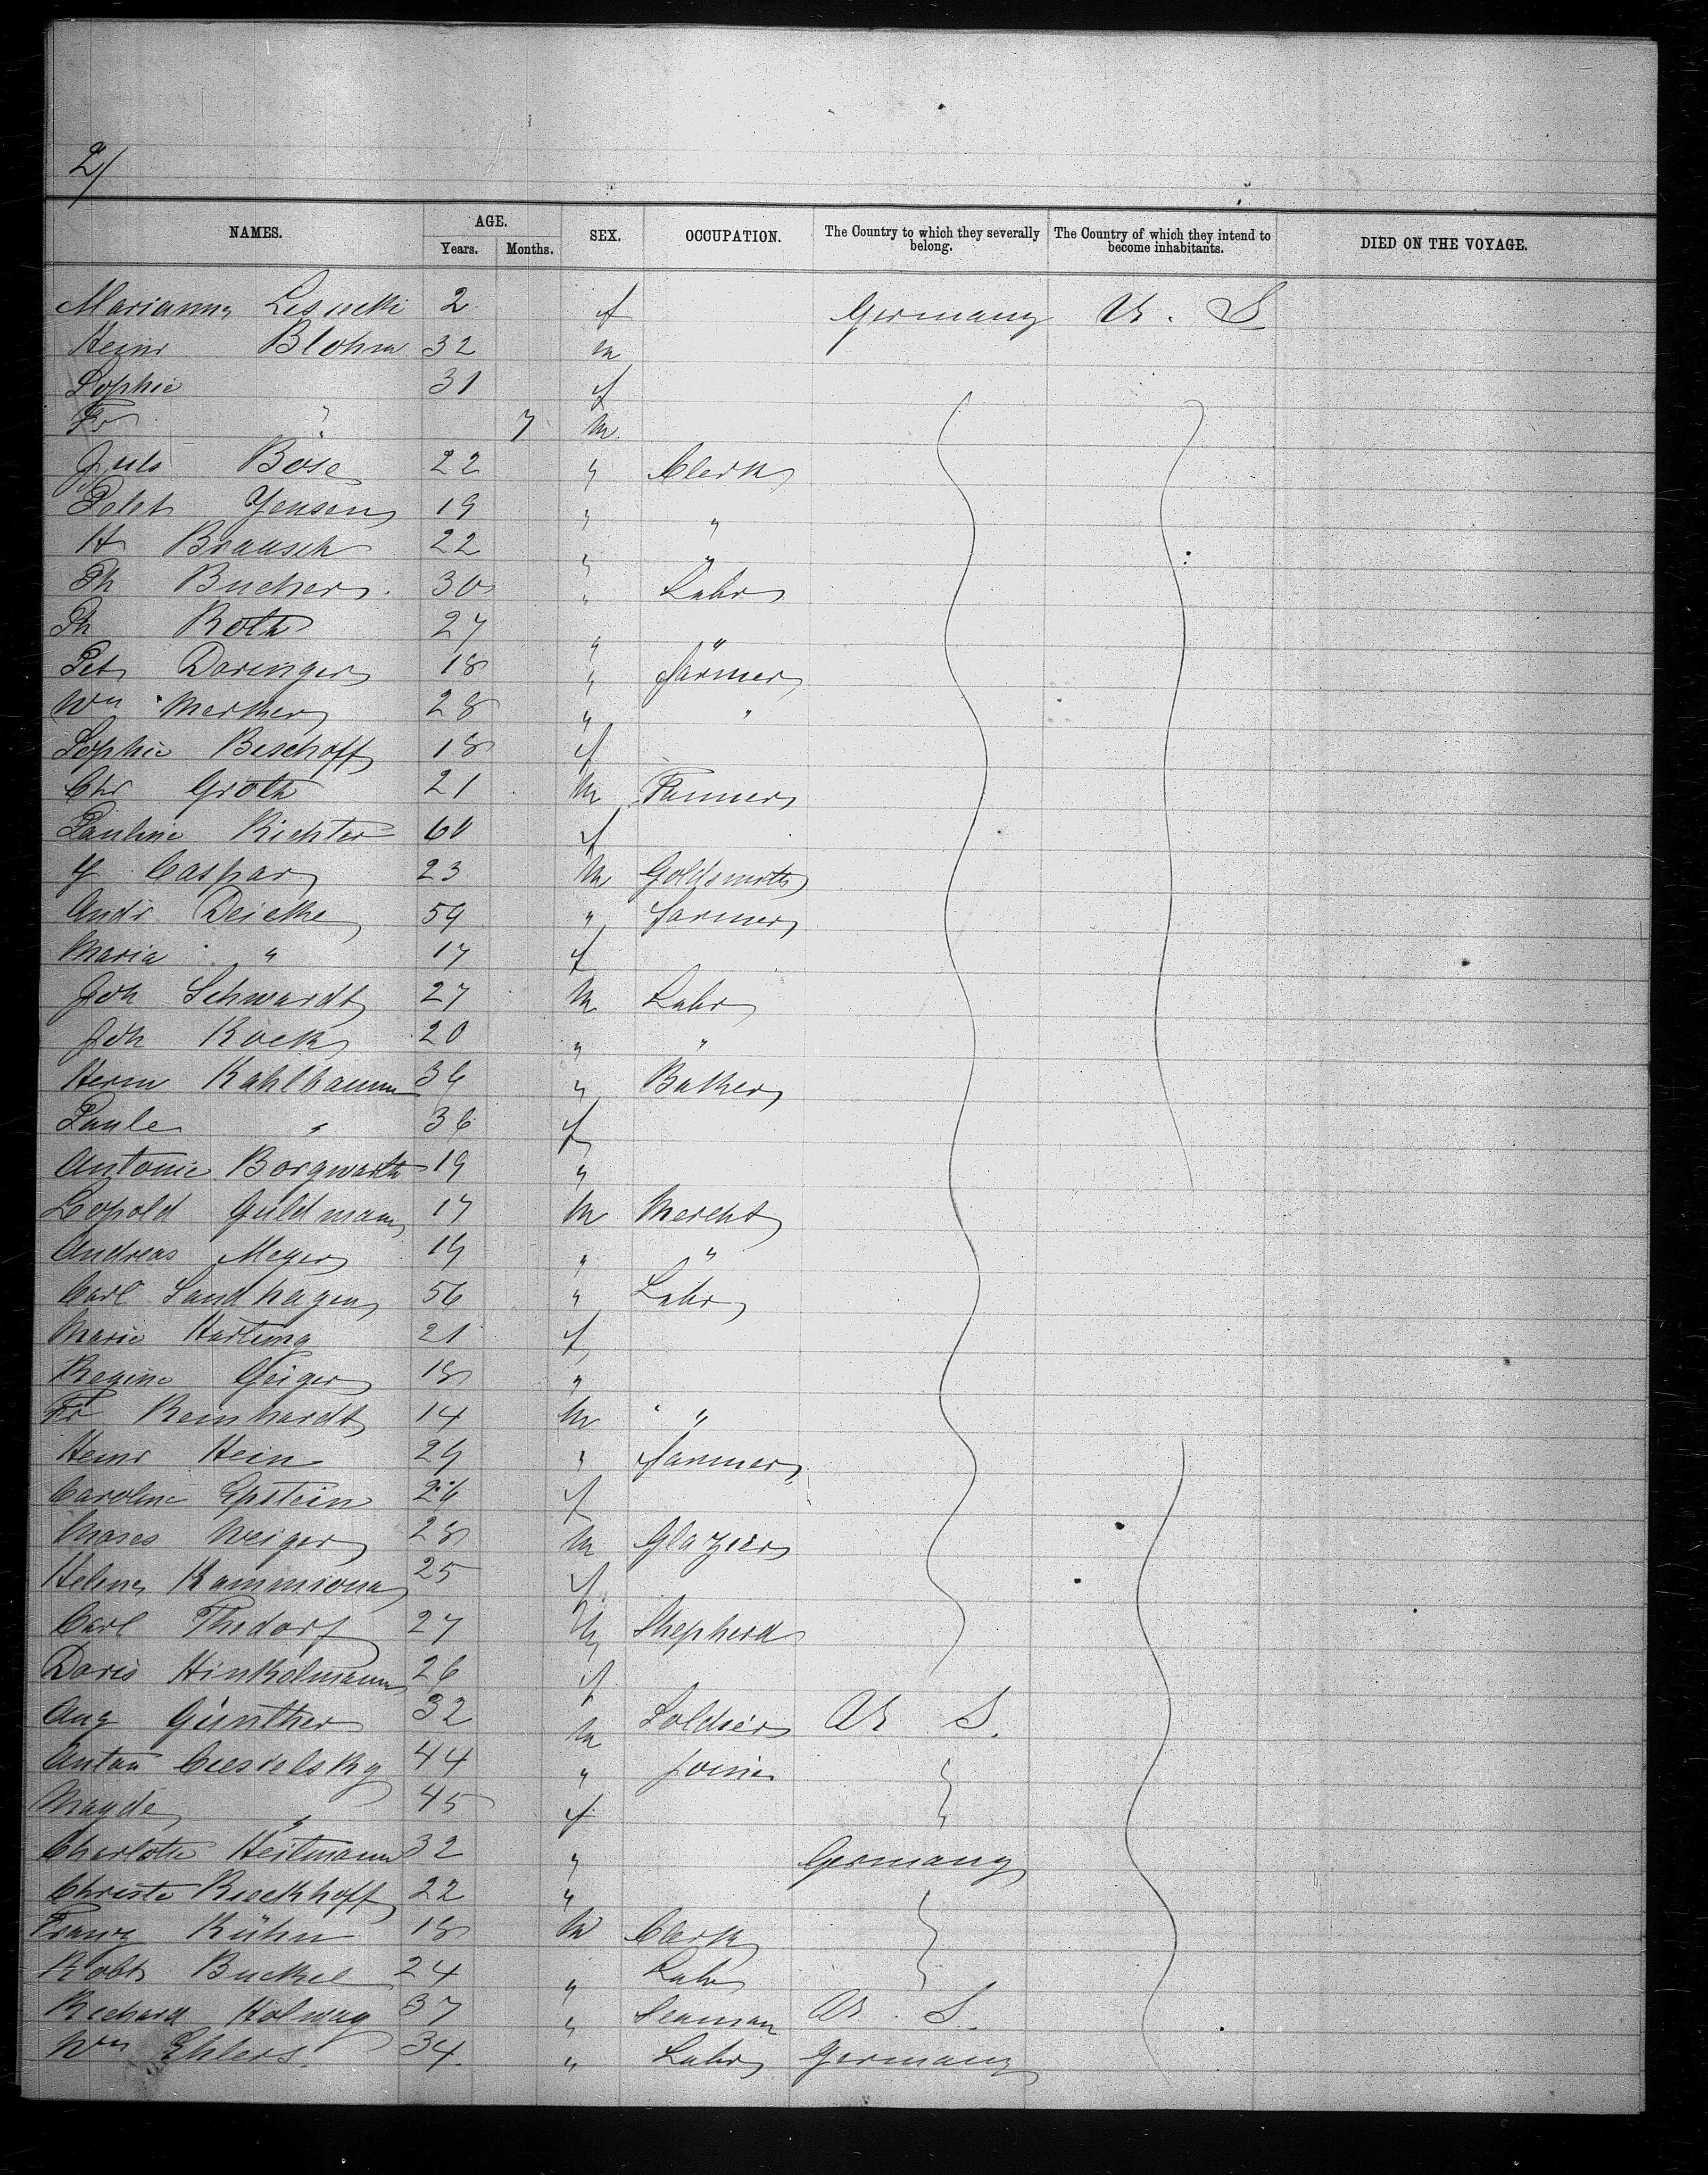 2/
NAMES. AGE. Years. Months. SEX. OCCUPATION. The Country to which they severally belong. The Country of which they intend to become inhabitants. DIED ON THE VOYAGE.
Marianna 2 f Germany U. S
Heinr Blohm 32 m
Sophie 31 f
Fr " 7 m
Juls Böse 22 " Clerk
Jensen 19 " "
H Brausch 22 " "
Ph Bucher 30 " Labr
Ph Roth 27 " "
Pet Daringer 18 " farmer
Wm Merker 28 " "
Sophie Bischoff 18 f
Chr Groth 21 m
Pauline Richter 60 f
Caspar 23 m Goldsmith
Andr Deicke 54 " farmer
Maria " 17 f
Joh Schwardt 27 m Labr
Joh Kock 20 " "
Herm Kahlbaum " Baker
Paule " 36 f
Antonie Borgwarth 19 "
Leopold Guldmann 17 m Mercht
Andreas Meyer " "
Carl Sandhagen 56 " Labr
Marie Hartung 21 f
Regine Geiger 18 "
Fr Reinhardt 14 m "
Heinr Hein " farmer
Caroline Epstein 26 f
28 m Glazier
Helena 25 f
Carl Thedorf 27 m Shepherd
Doris Hinkelmann 26 f
Aug Günther 32 m Soldier U S.
Anton Ciesielsky 44 " joiner
Magde " 45 f
Charlotte Heitmann 32 " Germany
Christe 22 "
Franz Kühn 18 m Clerk
Robt Buckel 24 " Labr
Richard 37 " Seaman U. S.
Wm Ehlers. 34. " Labr Germany